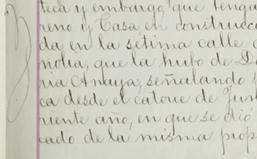 teca y embargo, que tenga
reno y Casa, en construcc
da, en la sétima calle
noha, que la hubo de D
ria Anaya, señalando
ca desde el catorce de Jun
riente año, en que se dió
cado de la misma prop